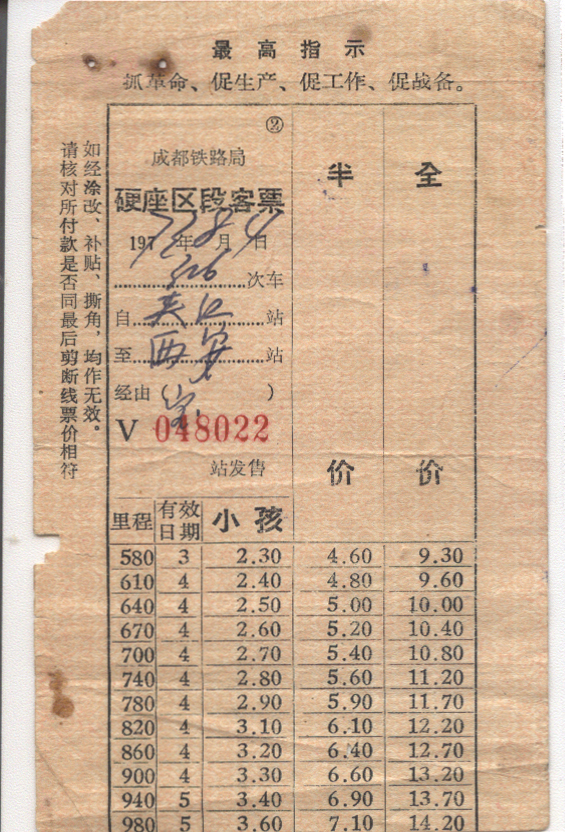 最高指示
抓革命、促生产、促工作、促战备。
如经涂改、补贴、撕角，均作无效。
请核对所付款是否同最后剪断线票价相符
②
成都铁路局
硬座区段客票
1972年8月4日
326次车
自夹江站
至西安站
经由 宝 )
V 048022
站发售
半价
全价
里程 有效日期 小孩
580 3 2.30 4.60 9.30
610 4 2.40 4.80 9.60
640 4 2.50 5.00 10.00
670 4 2.60 5.20 10.40
700 4 2.70 5.40 10.80
740 4 2.80 5.60 11.20
780 4 2.90 5.90 11.70
820 4 3.10 6.10 12.20
860 4 3.20 6.40 12.70
900 4 3.30 6.60 13.20
940 5 3.40 6.90 13.70
980 5 3.60 7.10 14.20